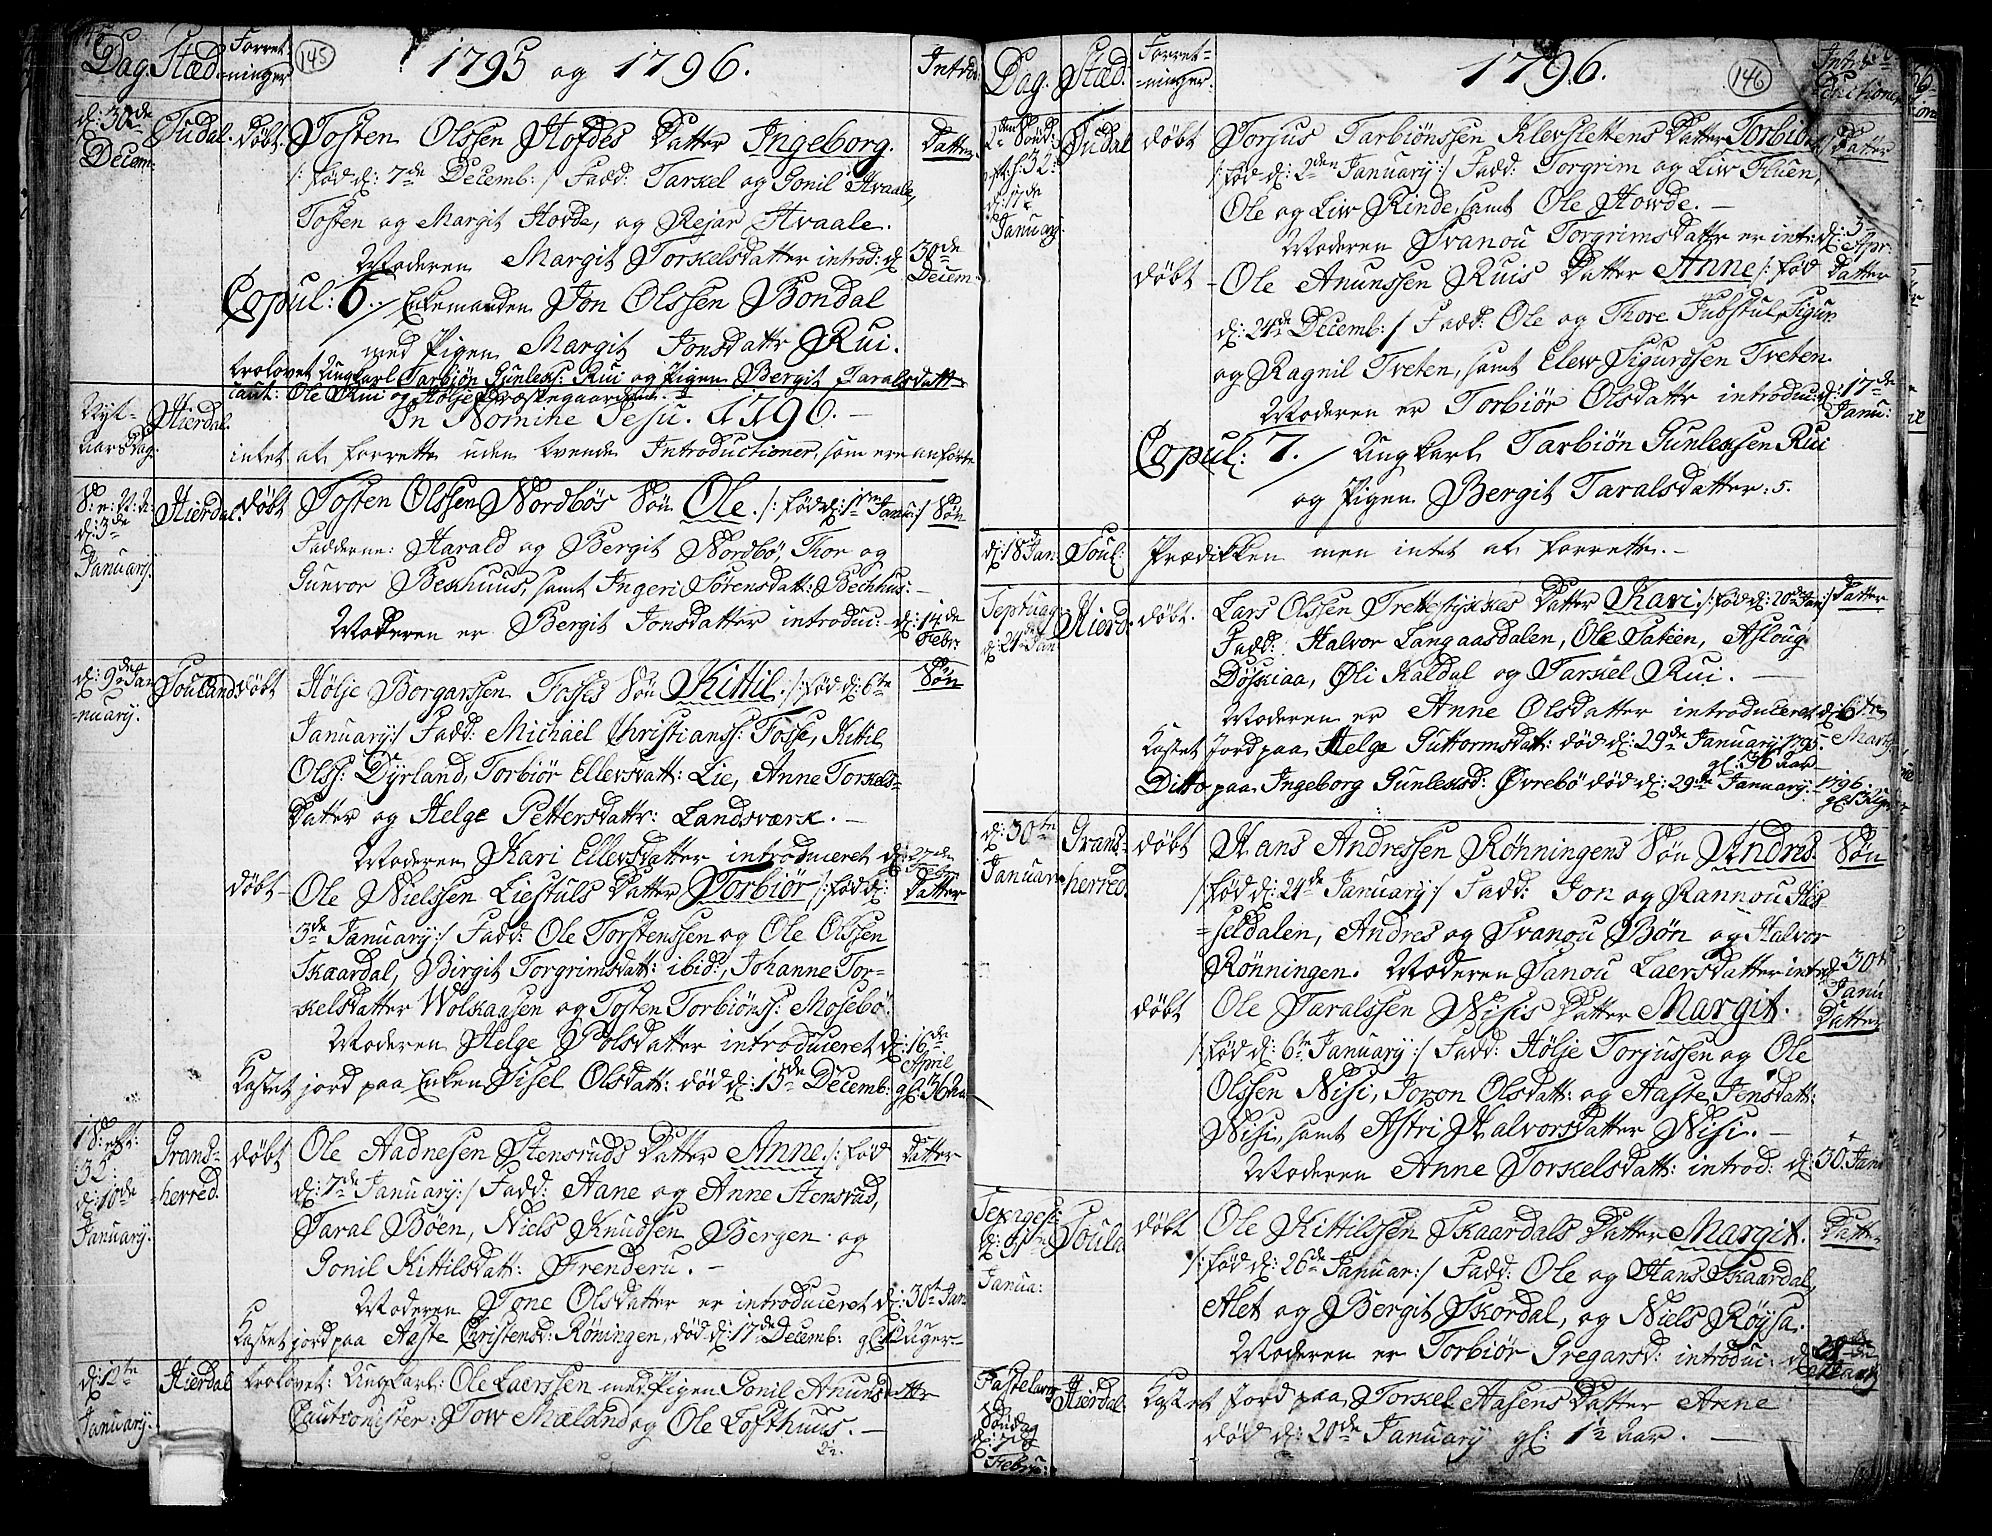 Dag. Stæd. Forret-ninger 145 1795 og 1796. Introd:
d: 30de Decem: Tudal. døbt. Tosten Olssen Hofdes Datter Ingeborg. Datter
/: fød d: 7de Decemb: / Fadd: Tarkel og Gonil Hvaale,
Tosten og Margit Hovde, og Rejar Hvaale.
Moderen Margit Torkelsdatter introd: d: 30de Decem:
Copul: 6. / Enkemanden Jon Olssen Bondal
med Pigen Margit Jonsdattr Rui.
trolovet Ungkarl Tarbiön Gunlekss: Rui og Pigen Bergit Taralsdatt
caut: Ole Rui og Hölje Præstegaarden.
Nyt-Aarsdag. Hierdal. In Nomine Jesu. 1796.
intet at forrette uden tvende Introductioner, som ere anförte
S: e: N: A: d: 3de January. Hierdal. døbt Tosten Olssen Nordbös Sön Ole. /: fød d: 1ste Janu: / Sön
Fadderne: Harald og Bergit Nordbö, Thor og
Gunvor Bekhuus, samt Ingeri Sörensdatt: Bechhus:
Moderen er Bergit Jonsdatter introduc: d: 14de Febr:
d: 9de Ja-nuary. Souland: døbt Hölje Borgarssen Fosses Sön Kittil. /: fød d: 6te Sön
January: / Fadd: Michäel Christianss: Fosse, Kittil
Olss: Dyrland, Torbiör Ellevsdatt: Lie, Anne Torkels-
Datter og Helge Pettersdattr: Landsværk.
Moderen Kari Ellevsdatter introduceret d: 27de Febr:
døbt Ole Nielssen Liestuls Datter Torbiör /: fød d: Datter
3de January: / Fadd: Ole Torstenssen og Ole Olssen
Skaardal, Birgit Torgrimsdatt: ibid:, Johanne Tor-
kelsdatter Wolkaasen og Tosten Torbiönss: Mosebö.
Moderen Helge Polsdatter introduceret d: 16de April
Kastet jord paa Enken Sisel Olsdatt: död d: 15de Decemb: gl: 76 Aa:
1 S: eft: 3 K: d: 10de January. Grans-herred. døbt Ole Aadnesen Stensruds Datter Anne. /: fød Datter
d: 7de January: / Fadd: Aane og Anne Stensrud,
Taral Böen, Niels Knudsen Bergen og
Gonil Kittilsdatt: Frenderu.
Moderen Tone Olsdatter er introduceret d: 30te Jan:
Kastet jord paa Aaste Christensd: Röningen, död d: 17de Decemb: gl: 12 Uger
d: 12te January. Hierdal trolovet: Ungkarl: Ole Laerssen med Pigen Gonil Anundsdattr
Cautionister: Tow Mæland og Ole Lofthuus.
Dag. Stæd. Forret-ninger. 1796. 146 Intro-ductioner
2den Sönd: eft: h: 3 K: d: 17de January. Tudal døbt Torjus Tarbiönssen Klevslettens Datter Torbiör Datter
/: fød d: 2den January: / Fadd: Torgrim og Liw Fluen,
Ole og Liw Rinde, samt Ole Howde.
Moderen Svanou Torgrimsdattr er int: d: 3 Apr:
døbt Ole Anunssen Ruis Datter Anne /: fød Datter
d: 24de Decemb: / Fadd: Ole og Thore Jubstul, Sigur
og Ragnil Treten, samt Elew Sigurssen Treten.
Moderen er Torbiör Olsdattr introduc: d: 17de Janu:
Copul: 7. / Ungkarl Tarbiön Gunlekssen Rui
og Pigen Bergit Taralsdatter: 5.
d: 18de Jan: Soul: Prædikken men intet at forrette.
Septuag: d: 24de Jan: Hierd: døbt. Lars Olssen Trettestykkes Datter Kari: /: fød d: 20de Jan: / Datter
Fadd: Halvor Langaasdalen, Ole Sateen, Asloug
Döskiaa, Öli Kaldal og Tarkel Rui.
Moderen er Anne Olsdatter introduceret d: 6te Marty
Kastet Jord paa Helge Guttormsdatt: död d: 29de January 1795. gl: 76 Aar
Ditto paa Ingeborg Gunleksd: Övrebö död d: 29de January: 1796.
d: 30te Januar Grans-herred. døbt Hans Andressen Rönningens Sön Andres Sön
/: fød d: 24de January: / Fadd: Jon og Rannou Hes-
seldalen, Andres og Svanou Bön og Halvor
Rönningen. Moderen Sanou Laersdatter intr: d: 30te Janu
døbt Ole Taralssen Nisis Datter Margit. Datter
/: fød d: 6te January: / Fadd: Hölje Torjussen og Ole
Olssen Nisi, Joron Olsdatt: og Aaste Jensdatt:
Nisi, samt Astri Halvorsdatter Nisi.
Moderen Anne Torkelsdatt: introd: d: 30 Janu
Sexages: d: 31te Janua: Soula døbt Ole Kittilssen Skaardals Datter Margit. Datter
/: fød d: 26de Januar: / Fadd: Ole og Hans Skaardal,
Alet og Bergit Skordal, og Niels Röysa.
Moderen er Torbiör Gregarsd: introduc: d:
Fastelavns Söndag d: 7de Febru: Hierdal. Kastet Jord paa Torkel Aasens Datter Anne
död d: 20de January gl: 1½ Aar.